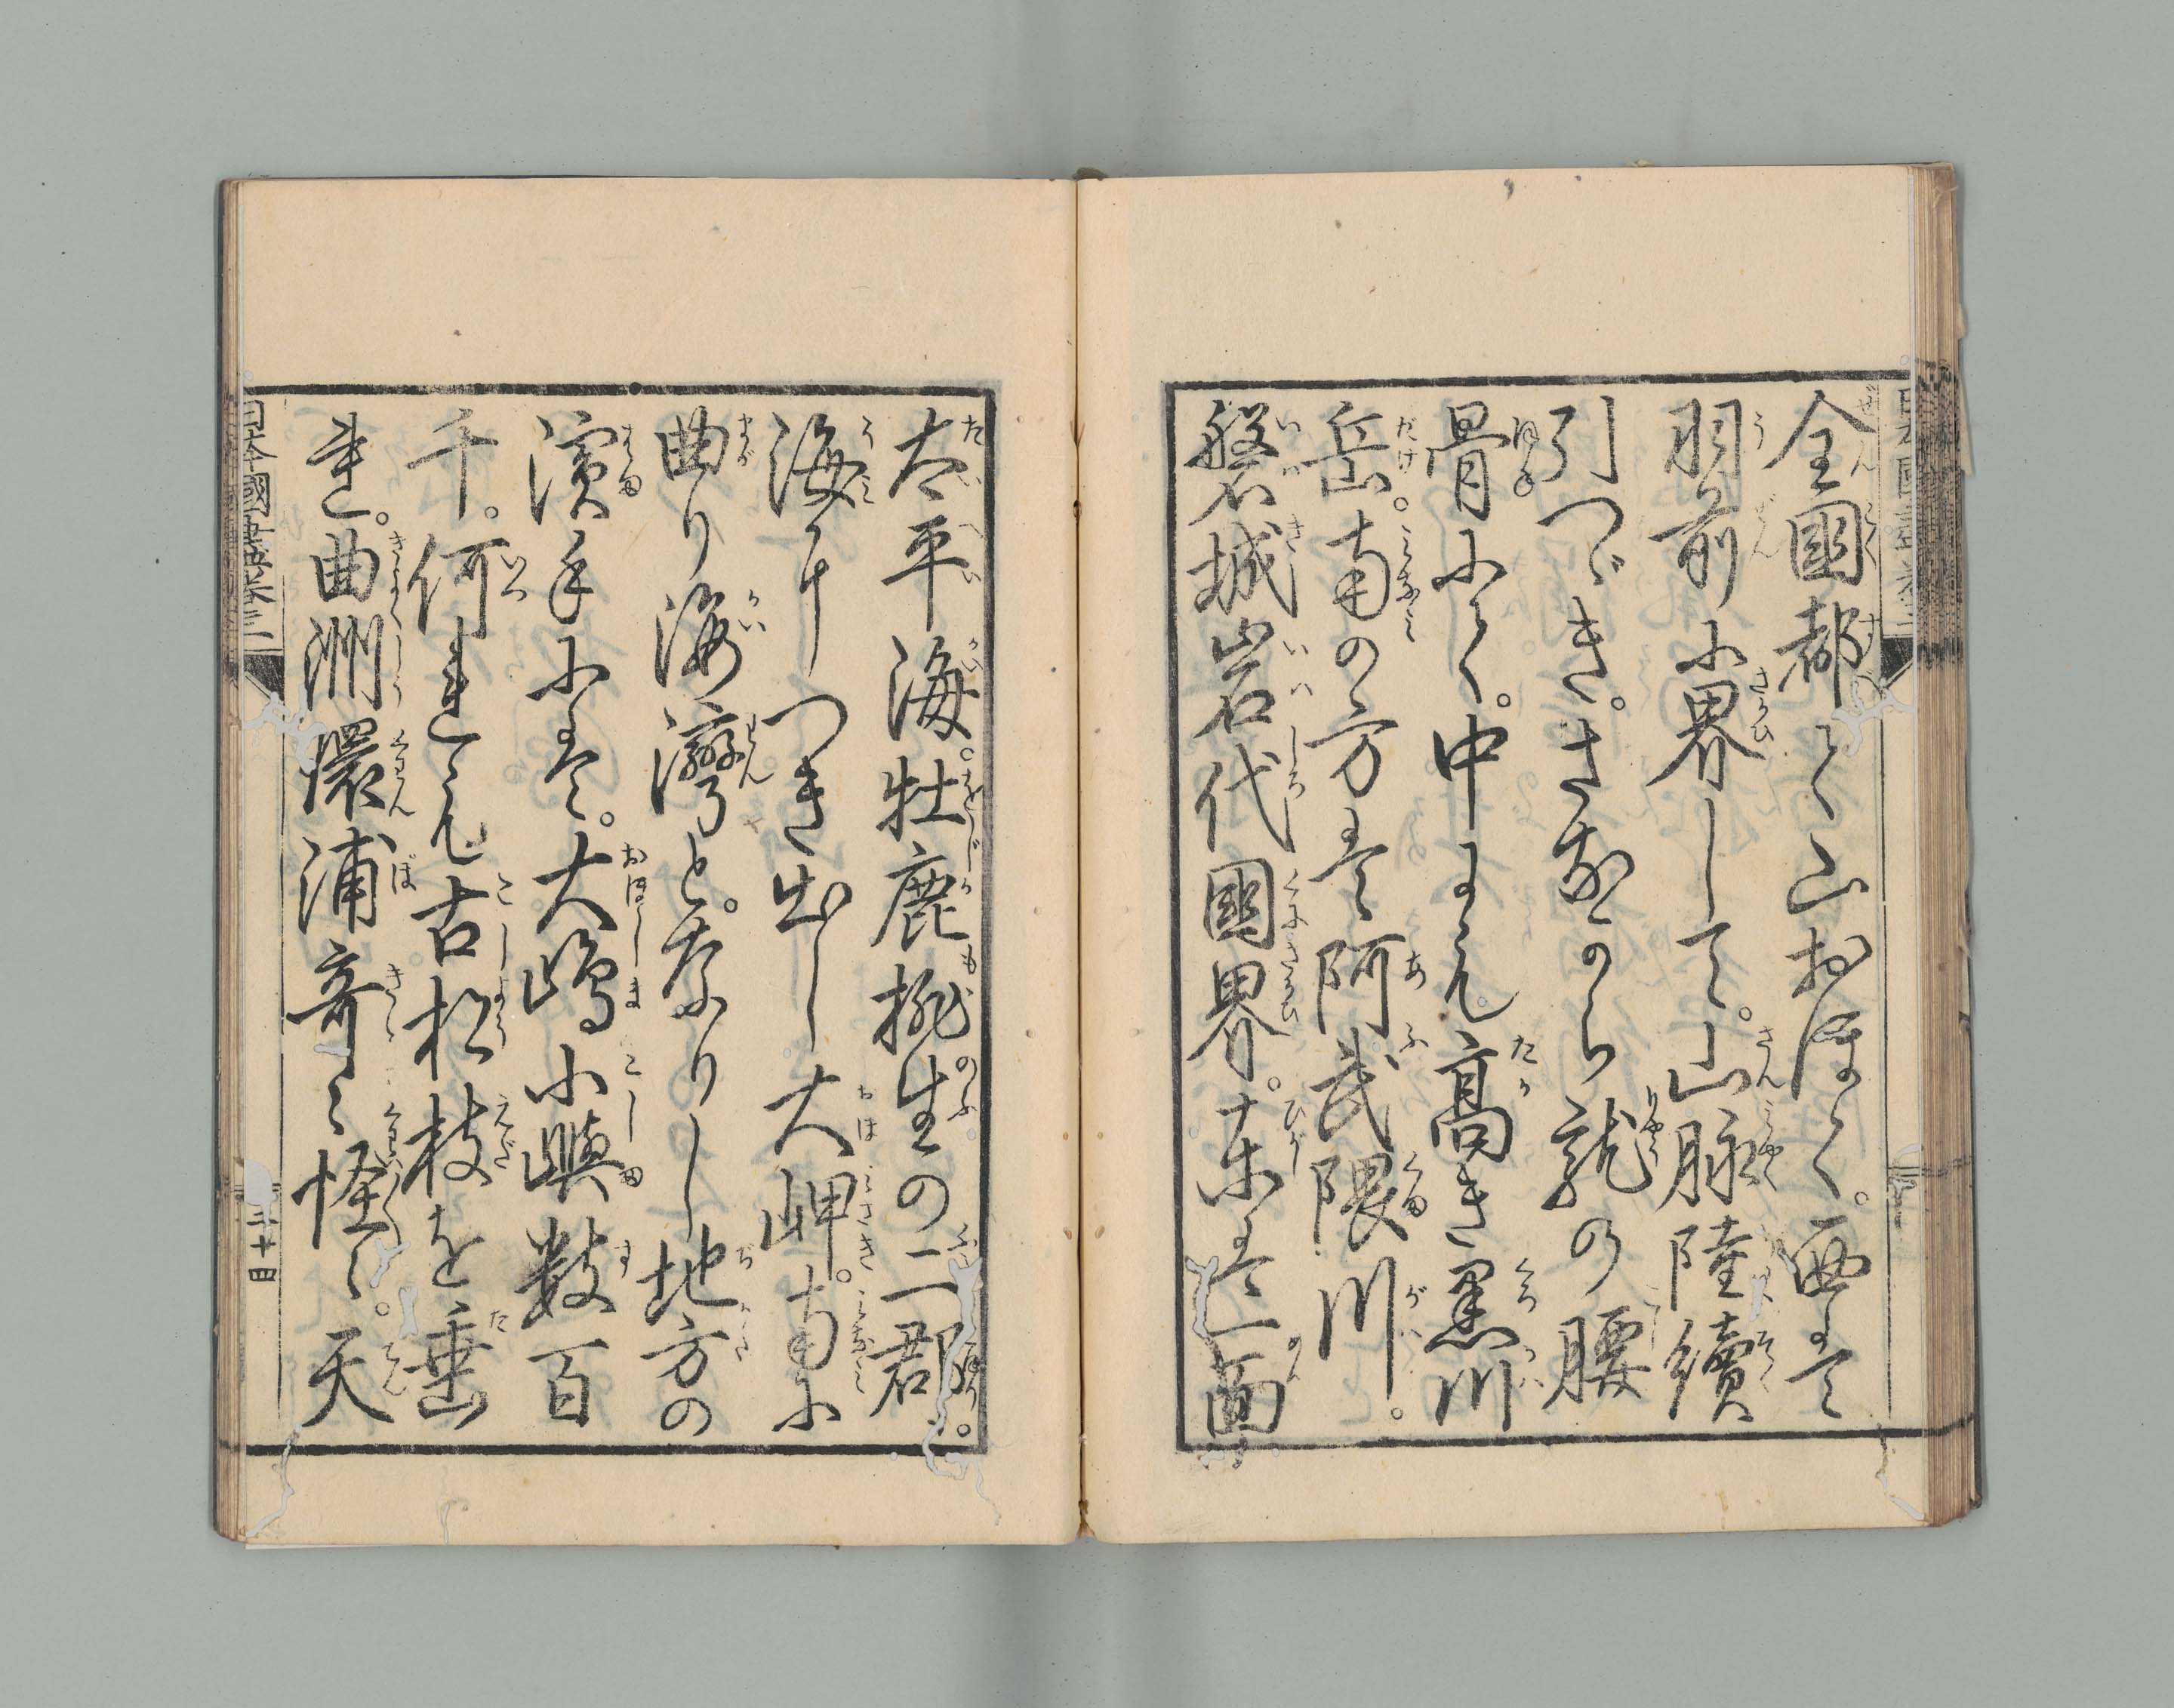 全國都て山おほく。西は
羽前に界して。山脉陸續
引つゞき。さながら龍の腰
骨にて。中にも高き黒川
岳。南の方は阿武隈川。
磐城岩代國界。東は一面
太平海。牡鹿桃生の二郡。
海につき出し大岬。南に
曲り海灣と。なりし地方の
濱手には。大嶋小嶼数百
千。何れも古松枝を垂
れ。曲洲環浦奇〻怪〻。天
日本國盡卷三
二十四